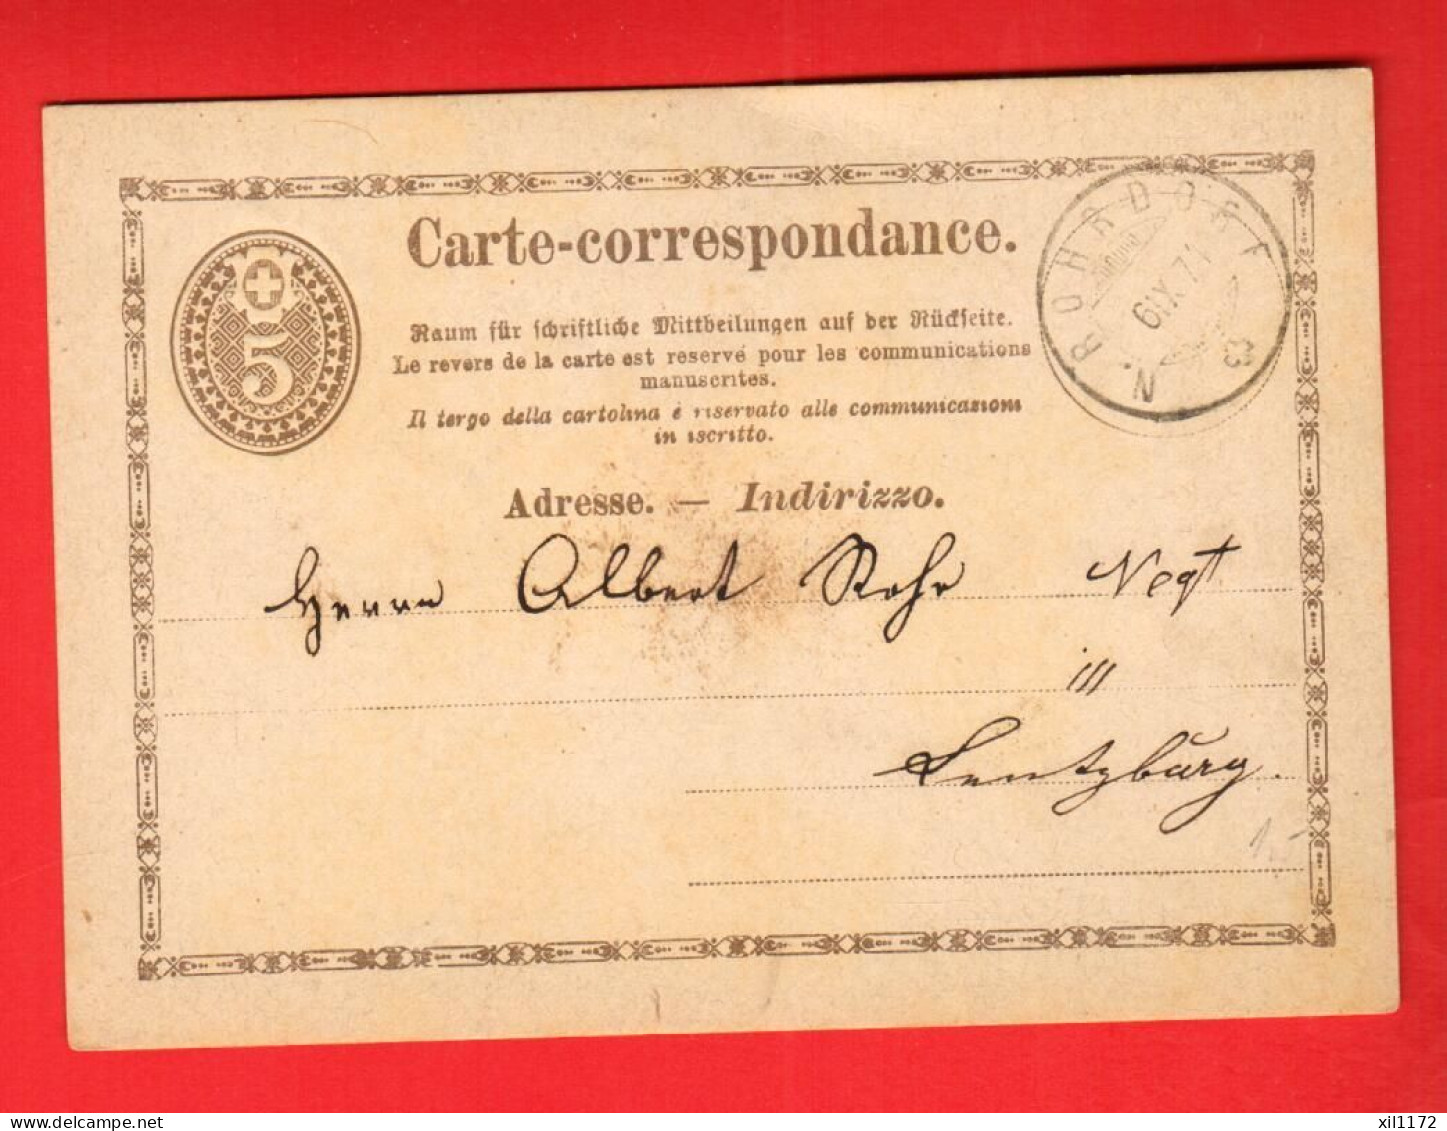 Carte-correspondance.
5
Raum für schriftliche Mittheilungen auf der Rückseite.
Le revers de la carte est reservé pour les communications
manuscrites.
Il tergo della cartolina è riservato alle communicazioni
in iscritto.
N. ROHRDORF
6 IX 71
Adresse. — Indirizzo.
Herrn Albert Rohr Negt
Lentzburg.
1.-
xil1172